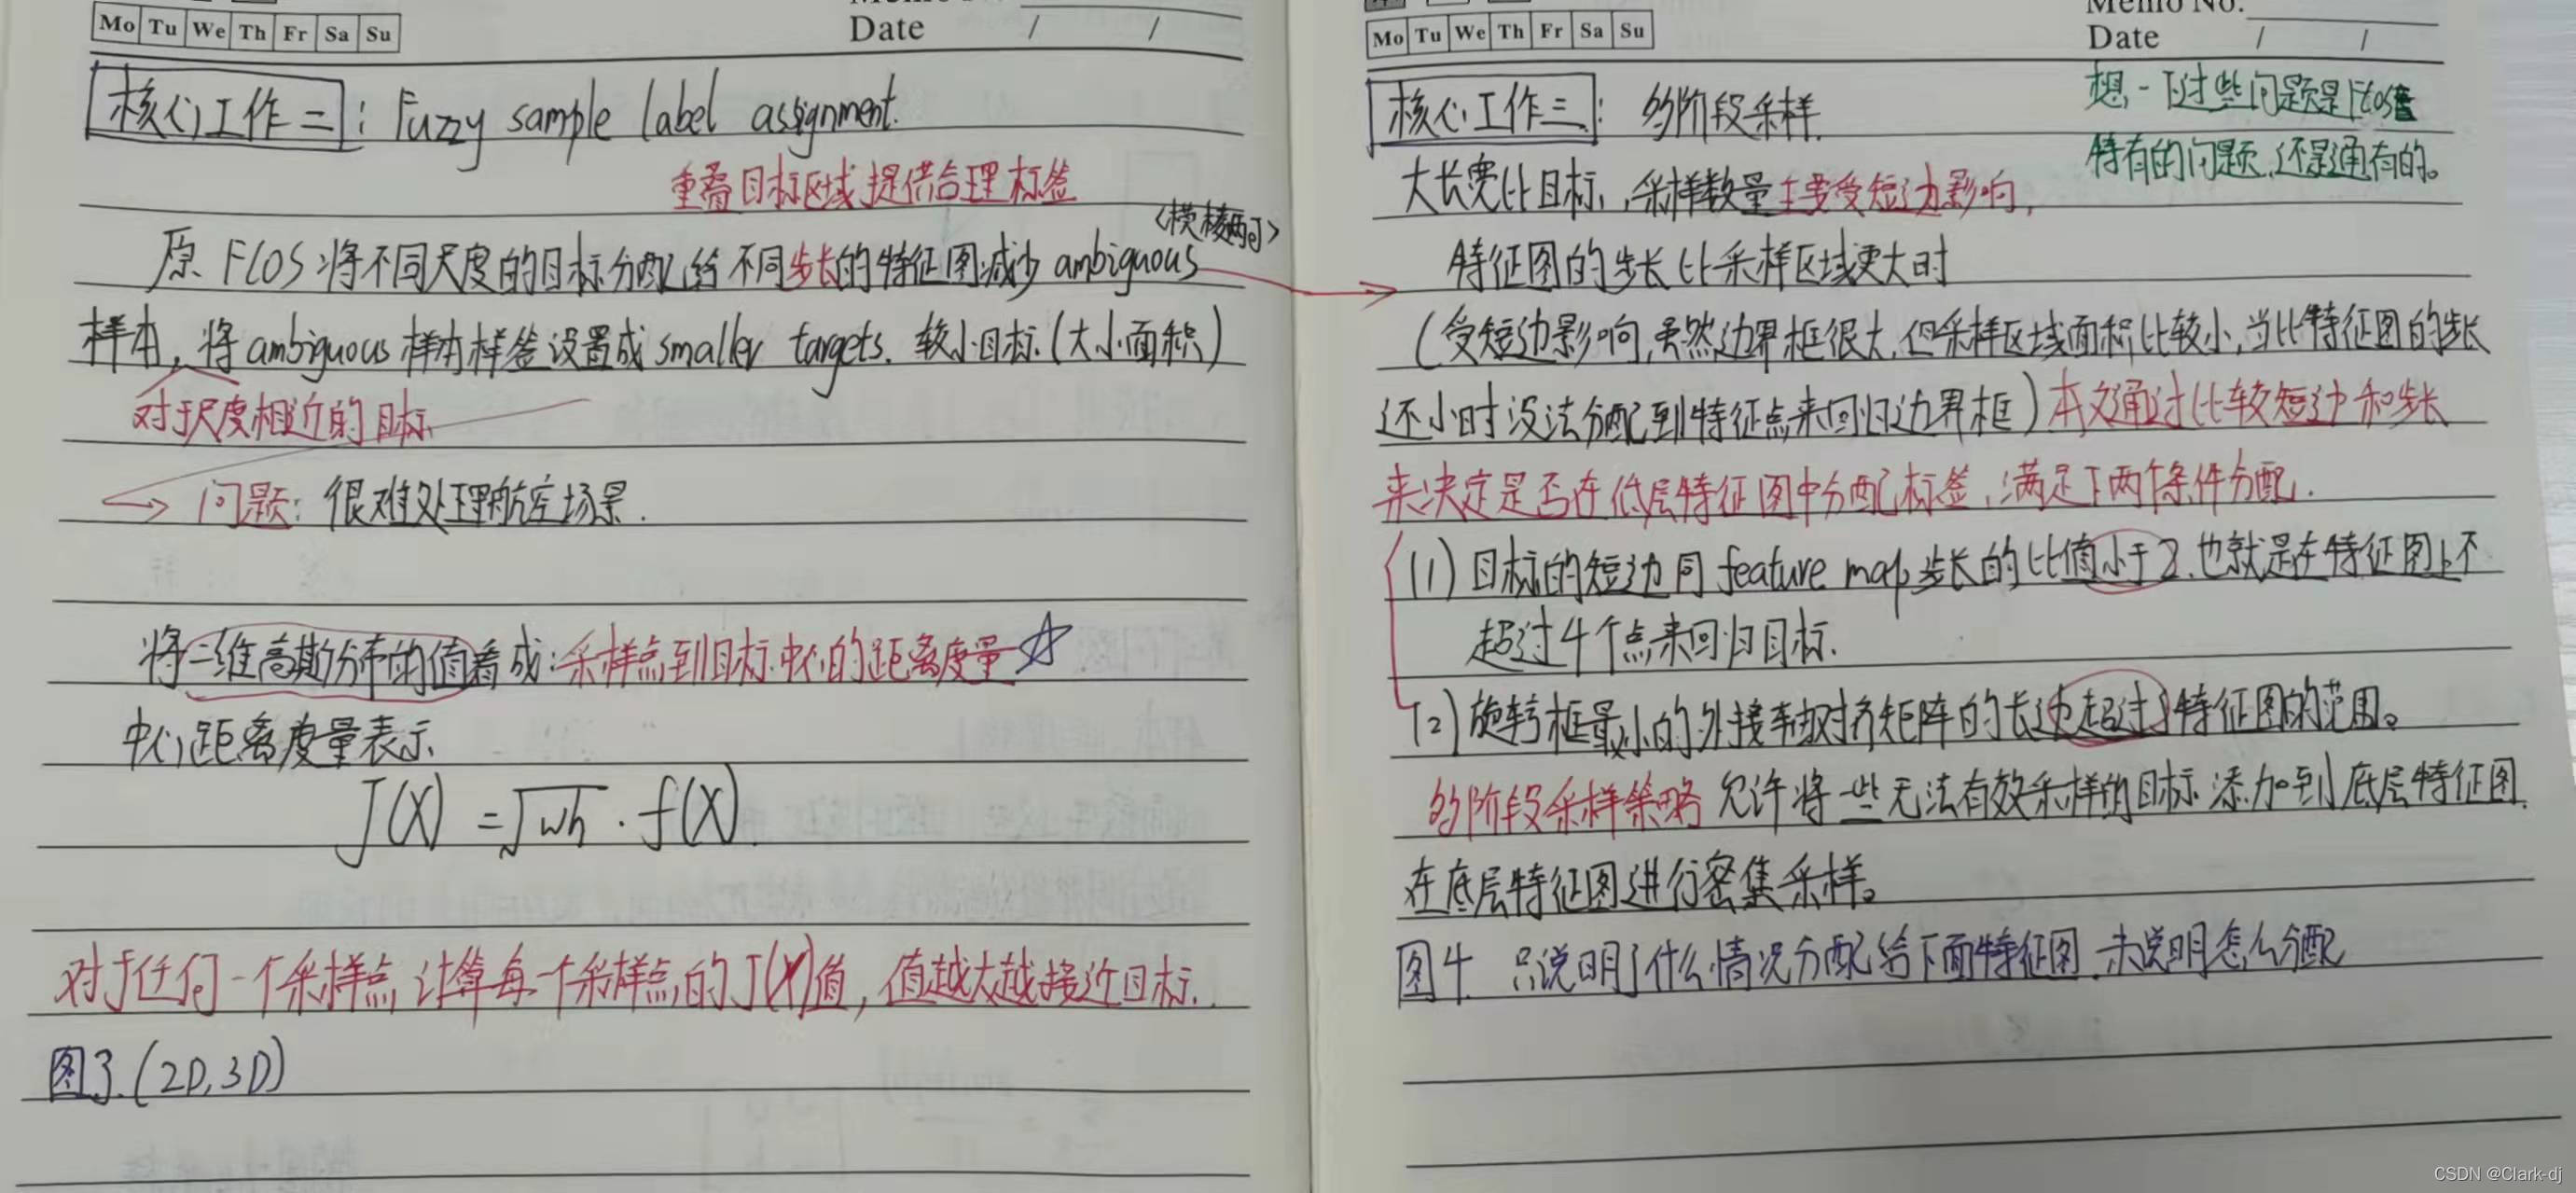 Mo Tu We Th Fr Sa Su
Date / /
核心工作二: Fuzzy sample label assignment.
重叠目标区域提供合理标签
<模棱两可>
原 FCOS 将不同尺度的目标分配给不同步长的特征图减少 ambiguous
样本, 将 ambiguous 样本样签设置成 smaller targets. 较小目标 (大小面积)
对于尺度相近的目标
问题: 很难处理航空场景.
将二维高斯分布的值看成: 采样点到目标中心的距离度量☆
中心距离度量表示
J(X) = √wh · f(X)
对于任何一个采样点, 计算每一个采样点的J(X)值, 值越大越接近目标.
图3. (2D, 3D)
Memo No.
Mo Tu We Th Fr Sa Su
Date / /
想一下这些问题是Fcos
特有的问题, 还是通有的。
核心工作三: 多阶段采样.
大长宽比目标, 采样数量主要受短边影响,
特征图的步长比采样区域更大时
(受短边影响, 虽然边界框很大, 但采样区域面积比较小, 当比特征图的步长
还小时没法分配到特征点来回归边界框) 本文通过比较短边和步长
来决定是否在低层特征图中分配标签, 满足下两个条件分配.
(1) 目标的短边同 feature map 步长的比值小于2. 也就是在特征图上不
超过4个点来回归目标.
(2) 旋转框最小的外接轴对齐矩阵的长边超过特征图的范围。
多阶段采样策略 允许将一些无法有效采样的目标添加到底层特征图.
在底层特征图进行密集采样。
图4. 只说明了什么情况分配给下面特征图, 未说明怎么分配
CSDN @Clark-dj